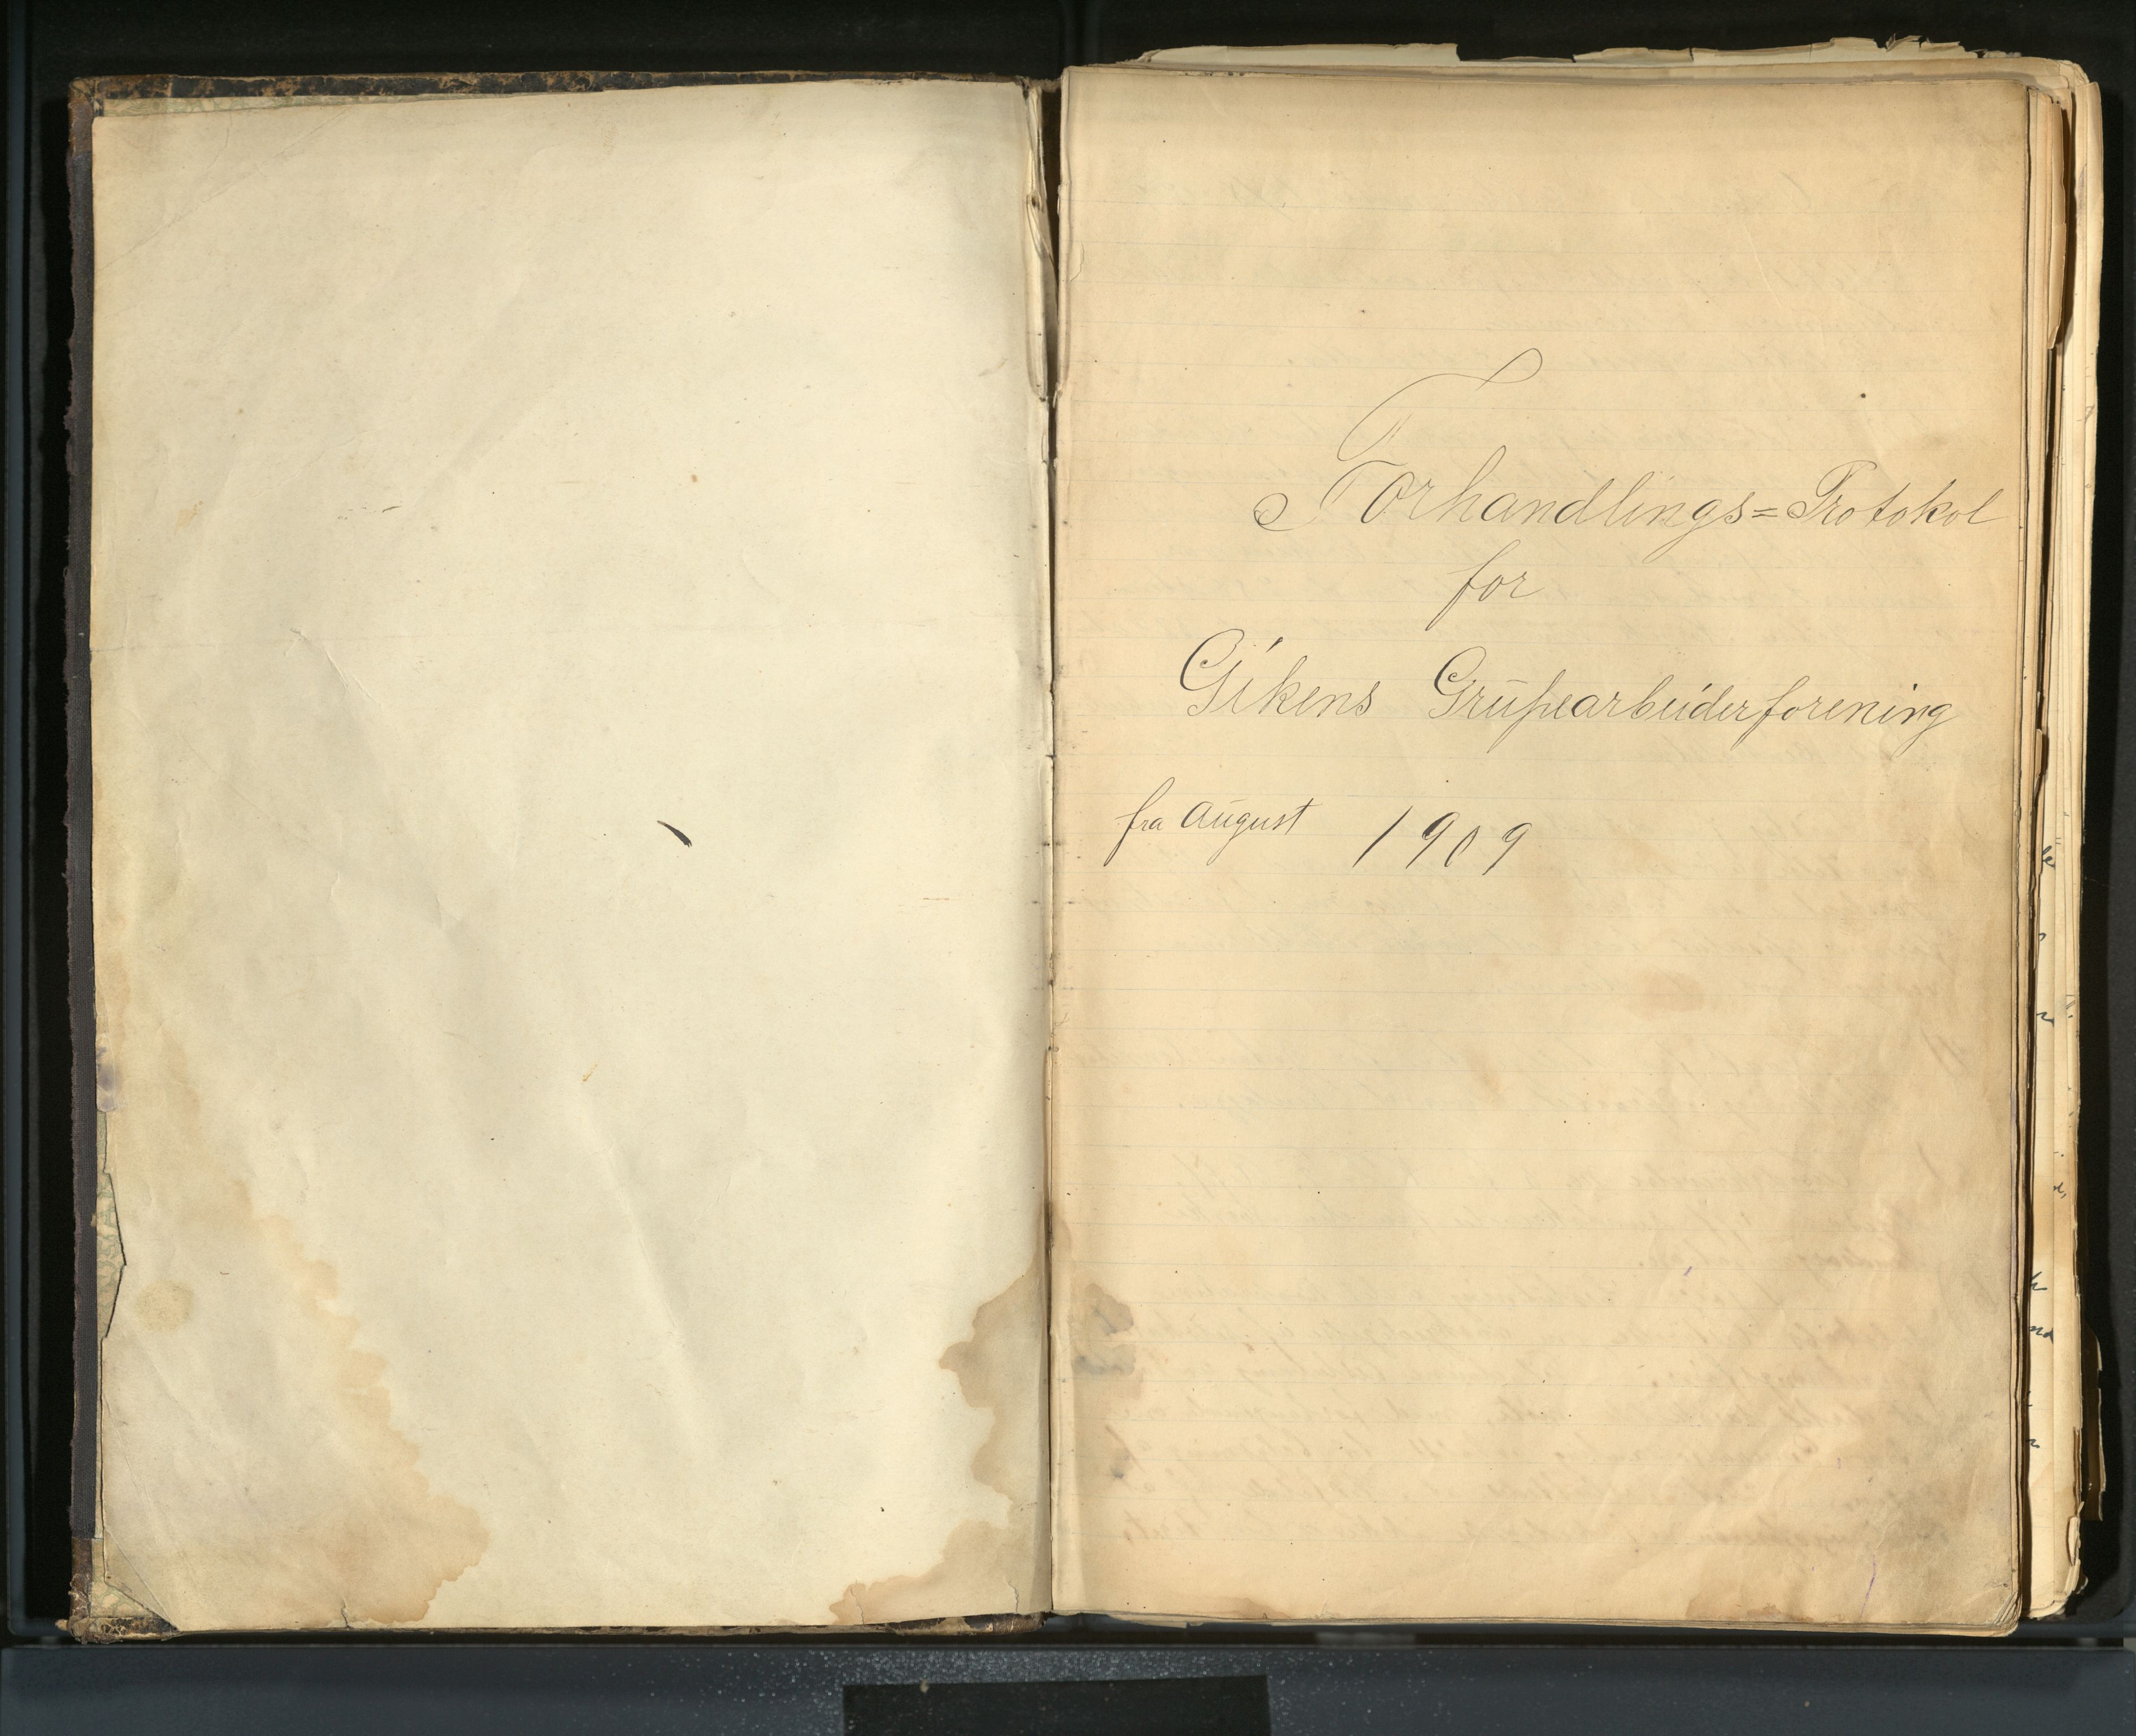 Forhandlings=Protokol
for
Gikens Grubearbeiderforening
fra August 1909